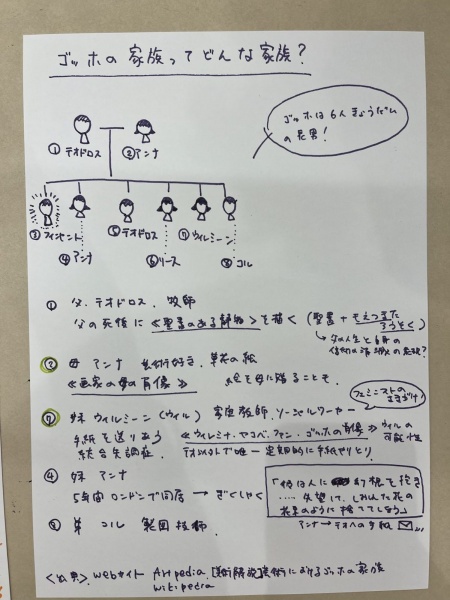 ゴッホの家族ってどんな家族?
ゴッホは6人きょうだい
の長男!
①テオドロス
②アンナ
③フィンセント
④アンナ
⑤テオドロス
⑥リース
⑦ウィルミーン
⑧コル
① 父 テオドロス. 牧師
父の死後に≪聖書のある静物≫を描く (聖書+もえつきた
ろうそく)
② 母 アンナ 芸術好き. 草花の絵
≪画家の母の肖像≫ 絵を母に贈ることも.
フェミニストの
⑦ 妹 ウィルミーン(ウィル) 家庭教師.ソーシャルワーカー
手紙を送りあう ≪ウィレミナ・ヤコバ・ファン・ゴッホの肖像≫ ウィルの
可能性
統合失調症. テオ以外で唯一定期的に手紙やりとり
④ 妹 アンナ
5年間ロンドンで同居 → ぎくしゃく
「彼は人に幻想を抱き
‥‥失望して、しおれた花の
花束のように捨ててしまう」
アンナ→テオへの手紙
弟 コル 製図技師.
<出典> webサイト Artpedia
wikipedia